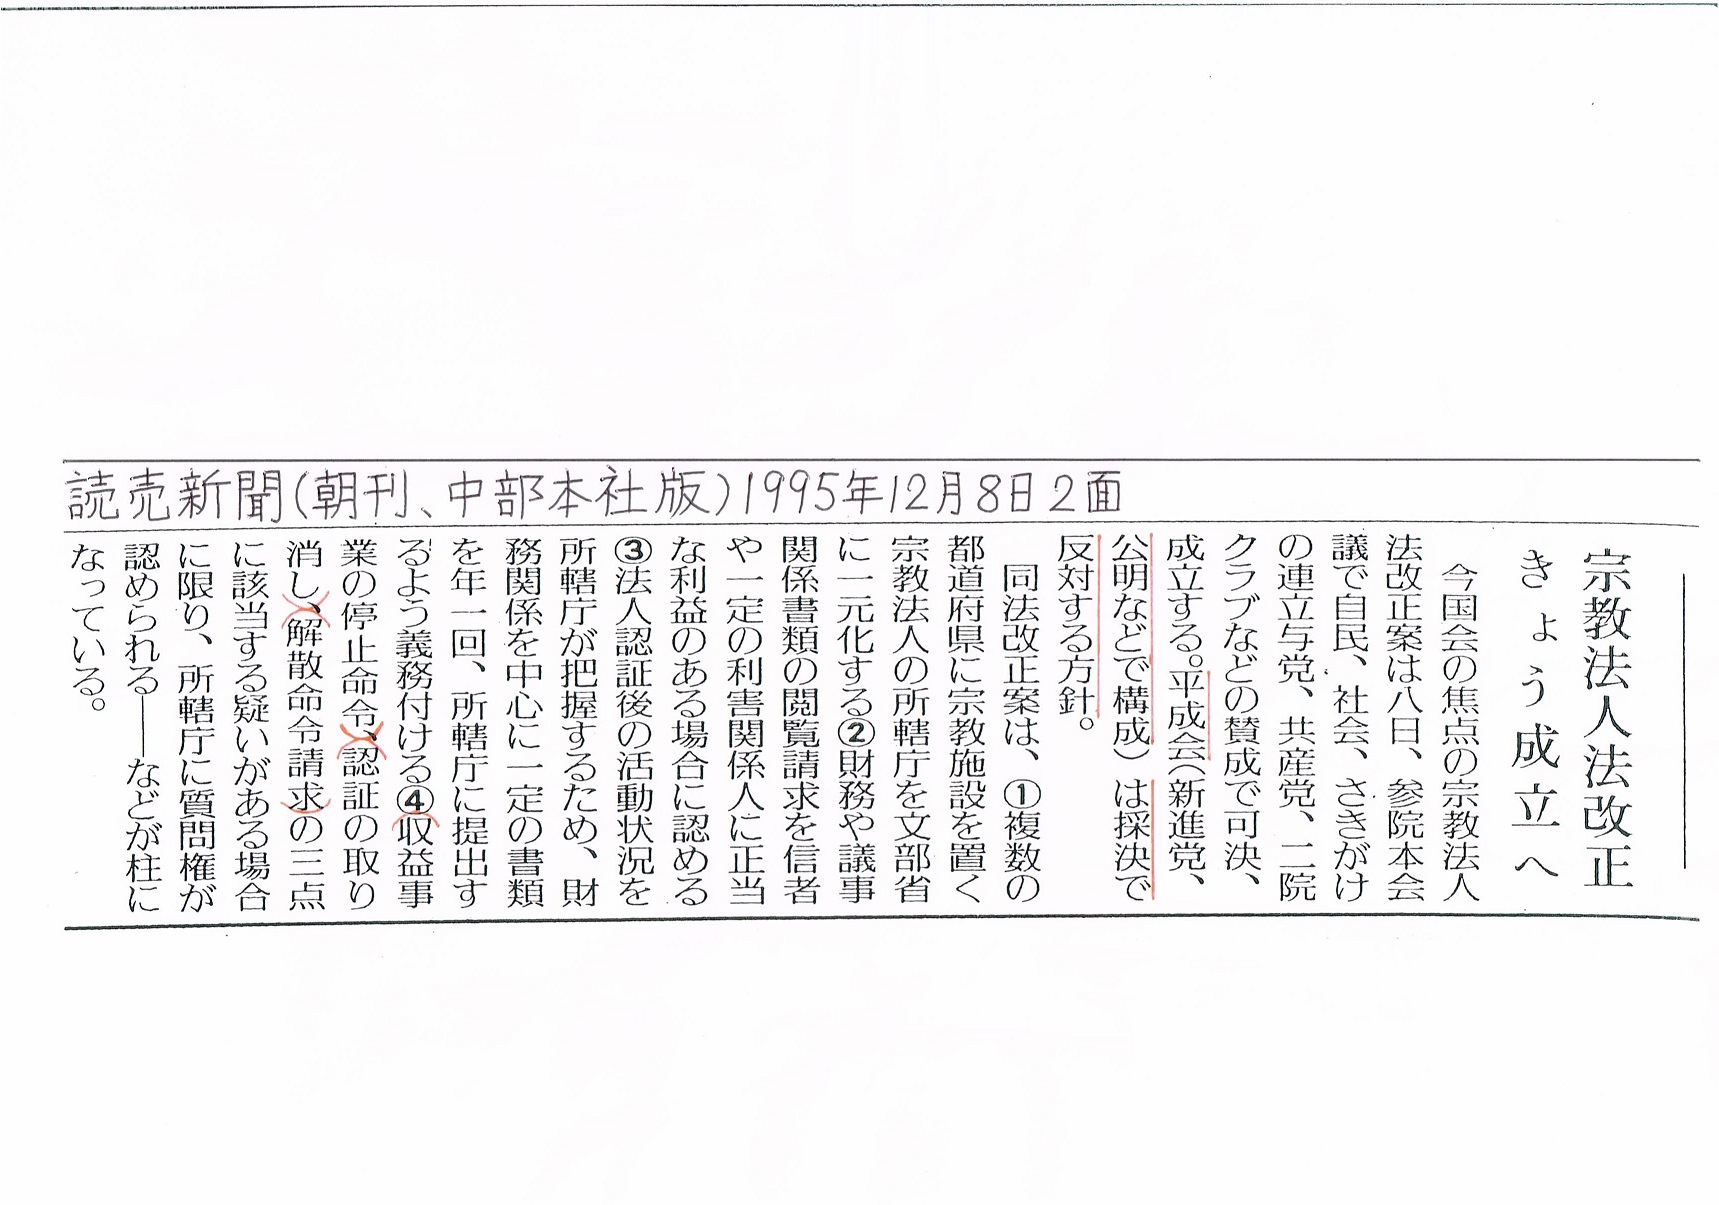 読売新聞(朝刊、中部本社版)1995年12月8日2面
宗教法人法改正
きょう成立へ
今国会の焦点の宗教法人
法改正案は八日、参院本会
議で自民、社会、さきがけ
の連立与党、共産党、二院
クラブなどの賛成で可決、
成立する。平成会(新進党、
公明などで構成)は採決で
反対する方針。
同法改正案は、①複数の
都道府県に宗教施設を置く
宗教法人の所轄庁を文部省
に一元化する②財務や議事
関係書類の閲覧請求を信者
や一定の利害関係人に正当
な利益のある場合に認める
③法人認証後の活動状況を
所轄庁が把握するため、財
務関係を中心に一定の書類
を年一回、所轄庁に提出す
るよう義務付ける④収益事
業の停止命令、認証の取り
消し、解散命令請求の三点
に該当する疑いがある場合
に限り、所轄庁に質問権が
認められる――などが柱に
なっている。